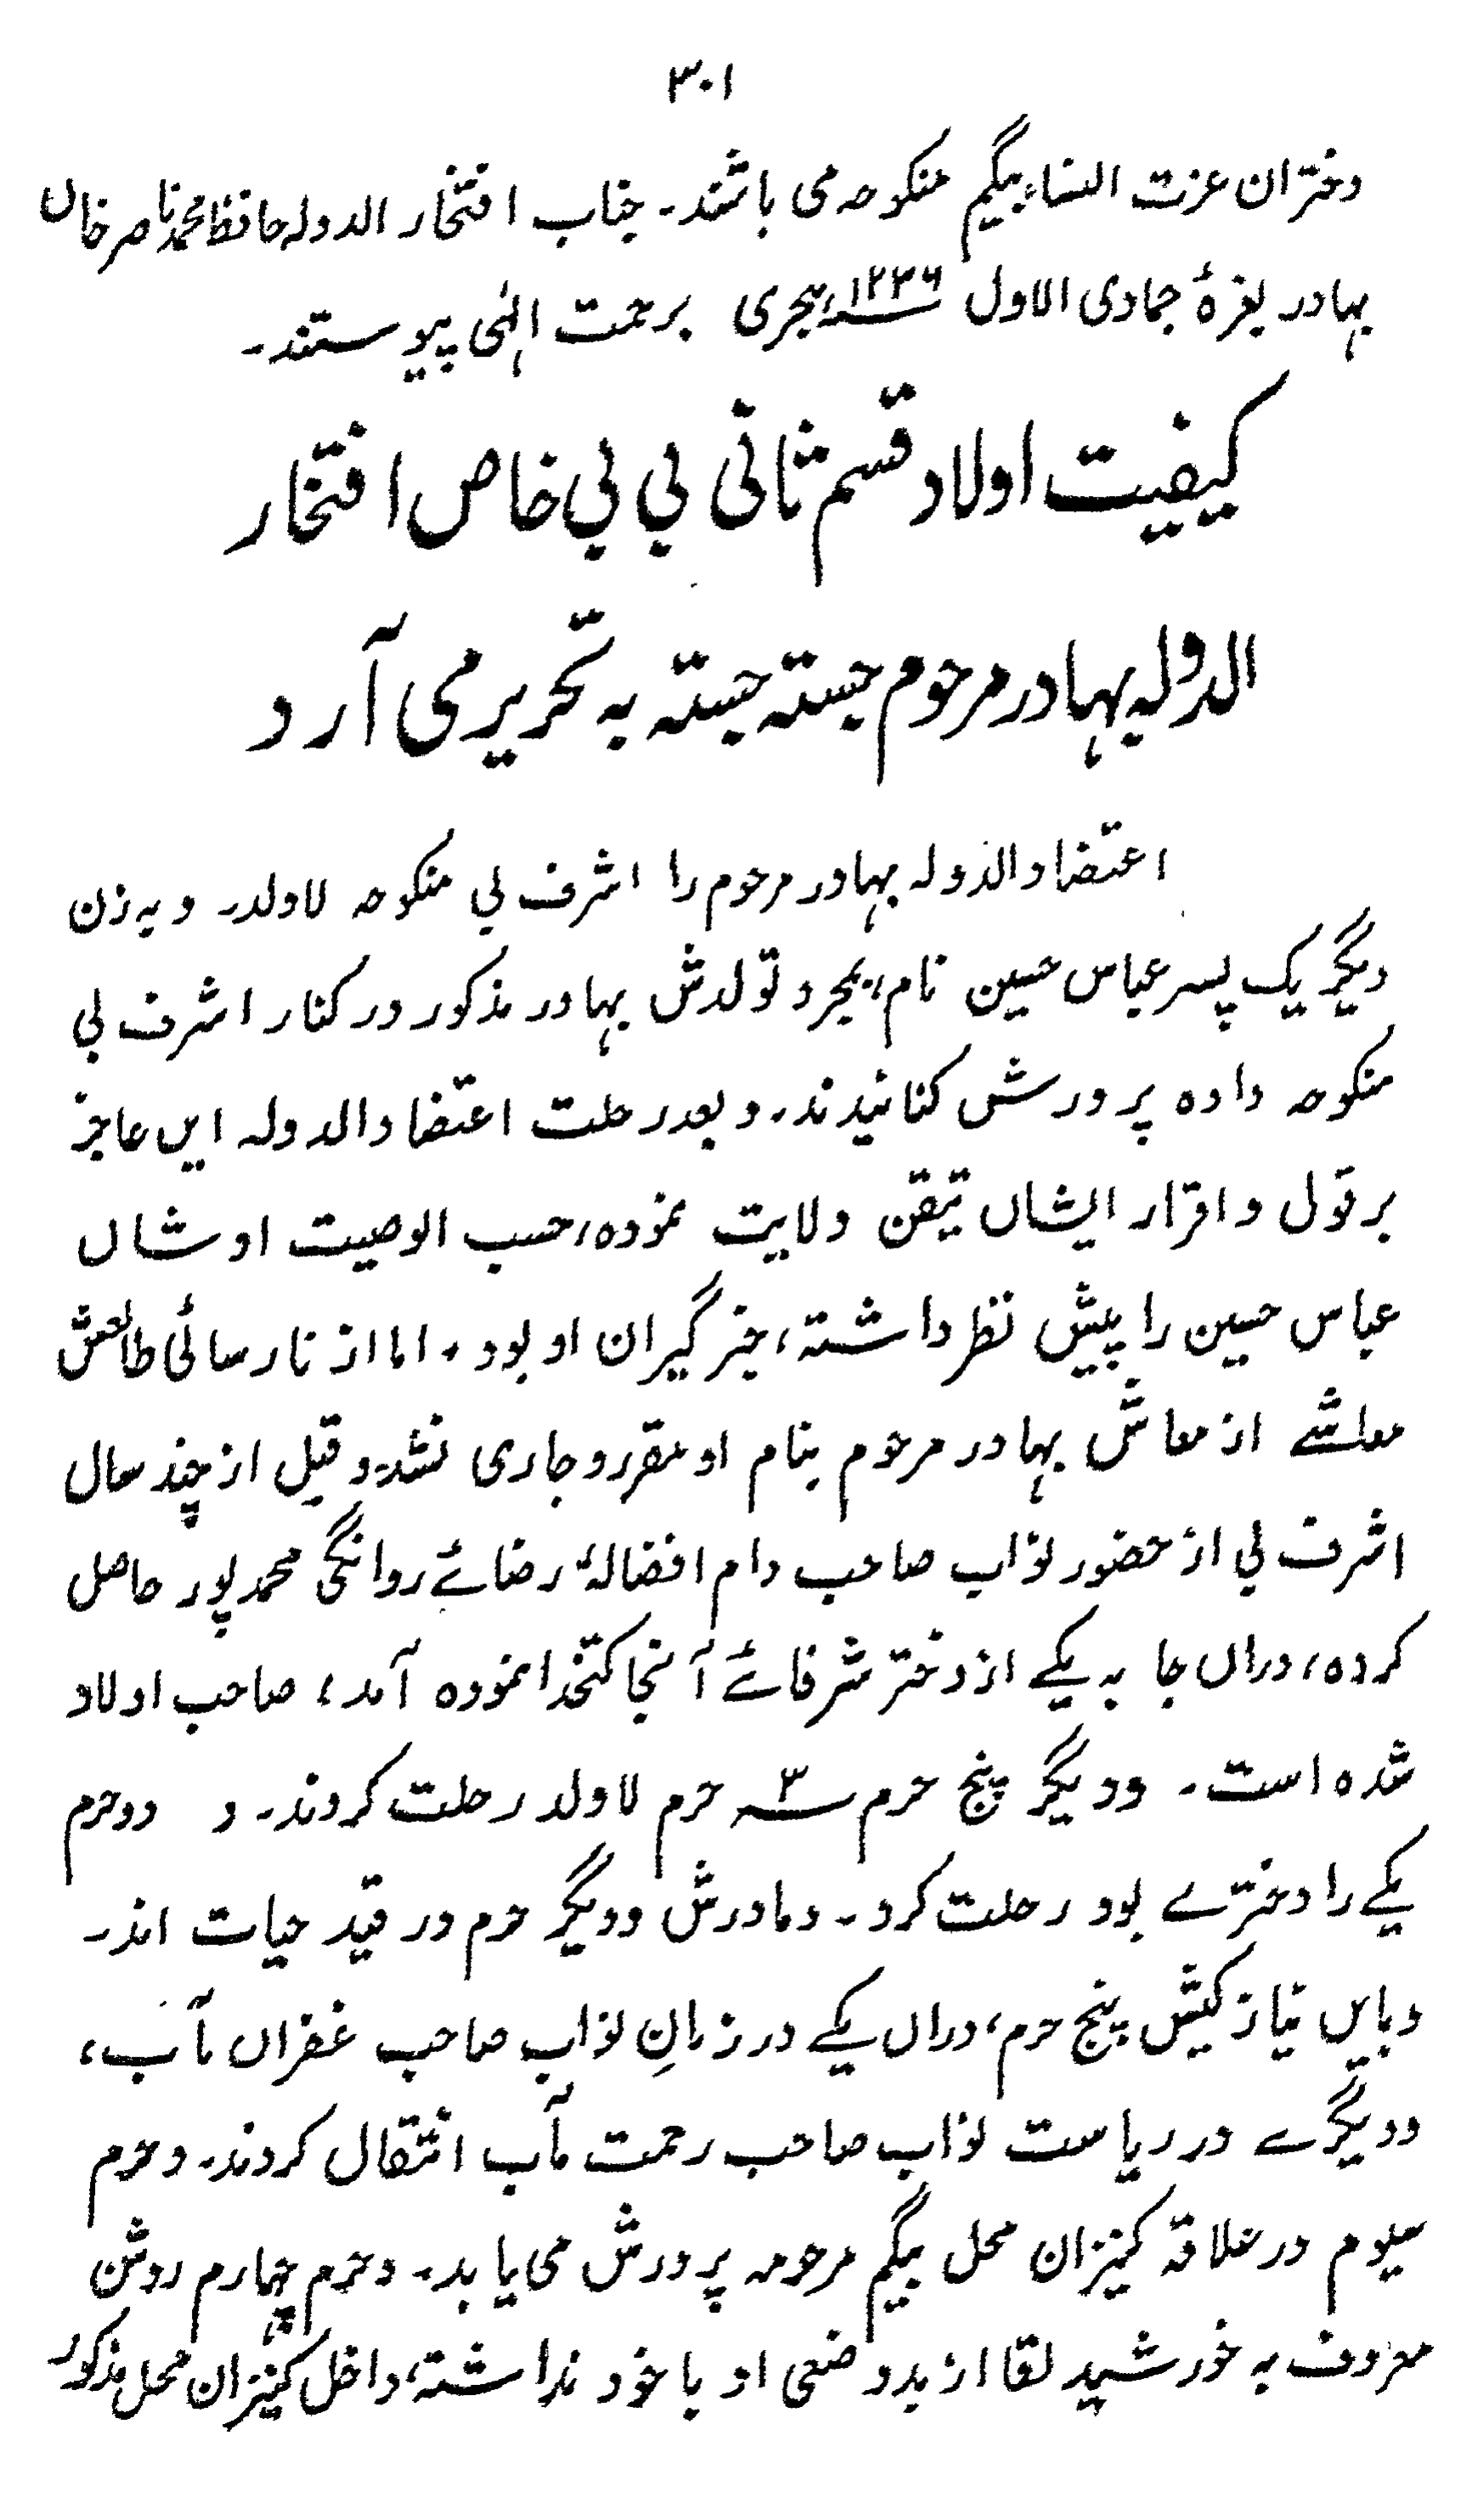 ۳۰۱
دختران عزت النساء بیگم منکوحہ می باشند۔ جناب افتخار الدولہ حافظ محمد ناصر خاں
بہادر بغرۂ جمادی الاول ۱۲۳۶؁ ہجری برحمت الٰہی پیوستند۔
کیفیت اولاد قسم ثانی بی بی خاص افتخار
الدولہ بہادر مرحوم جستہ جستہ بہ تحریر می آرد
اعتضاد الدولہ بہادر مرحوم را اشرف بی منکوحہ لاولد۔ و بہ زن
دیگر یک پسر عباس حسین نام، بمجرد تولدش بہادر مذکور در کنار اشرف بی
منکوحہ دادہ پرورش کنانیدند۔ و بعد رحلت اعتضاد الدولہ ایں عاجز
بر قول و اقرار ایشاں تیقن ولایت نمودہ، حسب الوصیت اوشاں
عباس حسین را پیش نظر داشتہ، خبر گیران او بود۔ اما از نارسائی طالعش
معاشے از معاش بہادر مرحوم بنام او مقرر و جاری نشد۔ و قبل از چند سال
اشرف بی از حضور نواب صاحب دام افضالہٗ رضائے روانگی محمد پور حاصل
کردہ، دراں جا بہ یکے از دختر شرفائے آنجا کتخدا نمودہ آمد، صاحب اولاد
شدہ است۔ و دیگر پنج حرم ۳؁ حرم لاولد رحلت کردند۔ و دو حرم
یکے را دخترے بود رحلت کرد۔ و مادرش و دیگر حرم در قید حیات اند۔
و بایں نیاز کیش پنج حرم، دراں یکے در زمانِ نواب صاحب غفراں مآب،
و دیگرے در ریاست نواب صاحب رحمت مآب انتقال کردند۔ و حرم
سیوم در علاقہ کنیزان محل بیگم مرحومہ پرورش می یابد۔ و حرم چہارم روشن
معروف بہ خورشید لقا از بدوضعی او با خود نداشتہ، داخل کنیزان محل مذکور